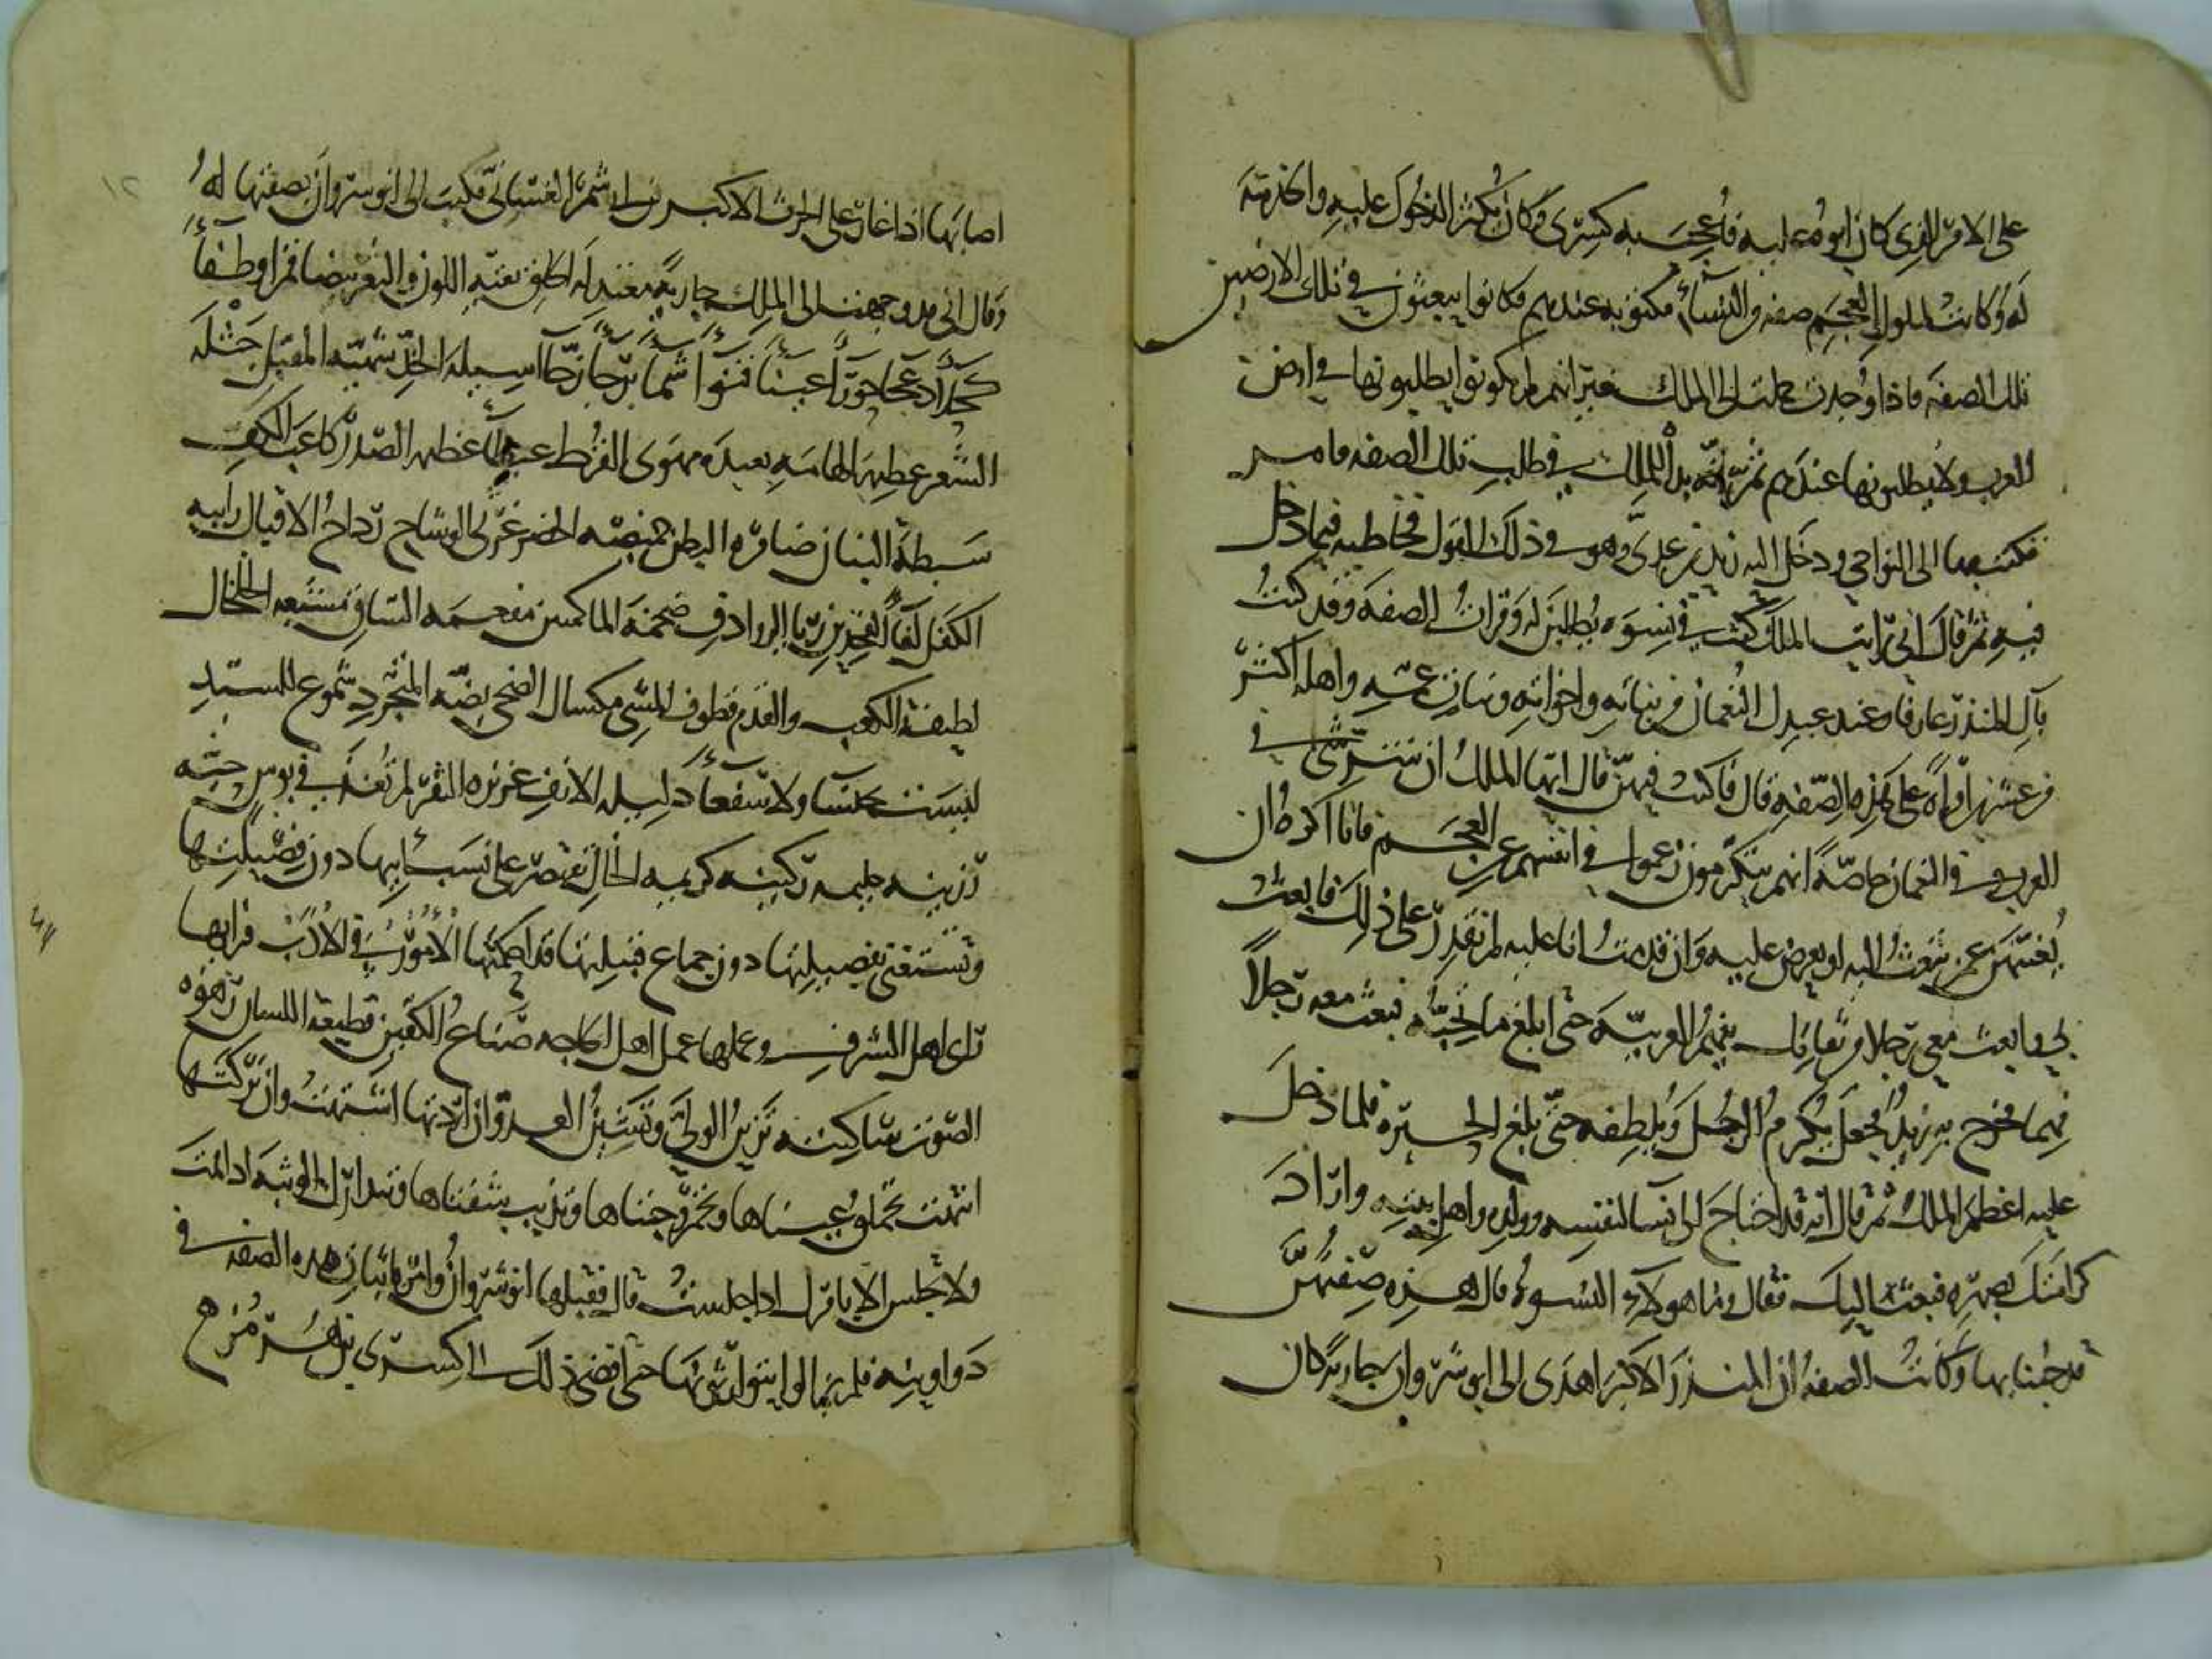 على الامر الذي كان ابوه عليه فاعجب به كسرى وكان يكثر الدخول عليه والخدمة
له وكانت لملوك العجم صفه من النسآء مكتوبه عندهم فكانوا يبعثون في تلك الارضين
تلك الصفة فاذا وجدت حملت الى الملك غير انهم لم يكونوا يطلبونها في ارض
العرب ولا يظنونها عندهم ثم انه بدا للملك في طلب تلك الصفه فامر
فكتب بها الى النواحي ودخل اليه زيد بن عدي وهو في ذلك القول فخاطبه فيما دخل
فيه ثم قال اني رايت الملك كتب في نسوه يطلبن له وقرات الصفه وقد كنت
بآل المنذر عارفا وعند عبدك النعمان من بناته واخواته وبنات عمه واهله اكثر
من عشرين امراة على هذه الصفه قال فاكتب فيهن قال ايها الملك ان شر شى في
العرب وفي النعمان خاصة انهم يتكرمون زعموا في انفسهم عن العجم فانا اكره ان
يغيبهن عمن تبعث اليه او يعرض عليه وان قدمت انا عليه لم يقدر على ذلك فابعثني
وابعث معي رجلا من ثقاتك يفهم العربية حتى ابلغ ما تحبه فبعث معه رجلا
فهما فخرج به زيد فجعل يكرم الرجل ويلطفه حتى بلغ الحيره فلما دخل
عليه اعظم الملك ثم قال انه قد احتاج الى نسآ لنفسه وولده واهل بيته واراد
كرامتك بصهره فبعث اليك فقال وما هولآء النسوه قال هذه صفتهن
قد جئنا بها وكانت الصفه ان المنذر الاكبر اهدى الى انوشروان جارية كان
اصابها اذ اغار على الحرث الاكبر بن ابي شمر الغساني فكتب الى انوشروان بصفتها له
وقال اني قد وجهت الى الملك جارية معتدلة الخلق نقيه اللون والثغر بيضا قمرا وطفآء
كحلآ دعجا حورآ عينآ قنوآ شمآ برجآ زجآ اسيله الخد شهيه المقبل جثله
الشعر عظيمة الهامه بعيده مهوى القرط عيطآ عظيمه الصدر كاعب
سبطة البنان ضامره البطن خميصه الخصر غرثى الوشاح رداح الاقبال رابيه
الكفل لفآ الفخذين ريا الروادف ضخمة الماكمين مفعمه الساق مشبعه الخلخال
لطيفة الكعب والقدم قطوف المشي مكسال الضحى بضه المتجرد سموع للسيد
ليست بخنسا ولا سفعآ ذليله الانف عزيزه النفر لم تغذ في بوس حييه
رزينه حليمه ركينه كريمه الخال تقتصر على نسب ابيها دون فصيلتها
وتستغني بفصيلتها دون جماع قبيلتها قد احكمتها الامور في الادب فرايها
راى اهل الشرف وعملها عمل اهل الحاجه صناع الكفين قطيعة اللسان رهوه
الصوت ساكنه تزين الولي وتشين العدو ان اردتها اشتهت وان تركتها
انتهت تحملق عيناها وتحمر وجنتاها وتذبذب شفتاها وتبادرك الوثبه اذا قمت
ولا تجلس الا بامرك اذا جلست قال فقبلها انوشروان وامر باثبات هذه الصفه في
دواوينه فلم يزالوا يتوارثونها حتى افضى ذلك الى كسرى بن هرمز